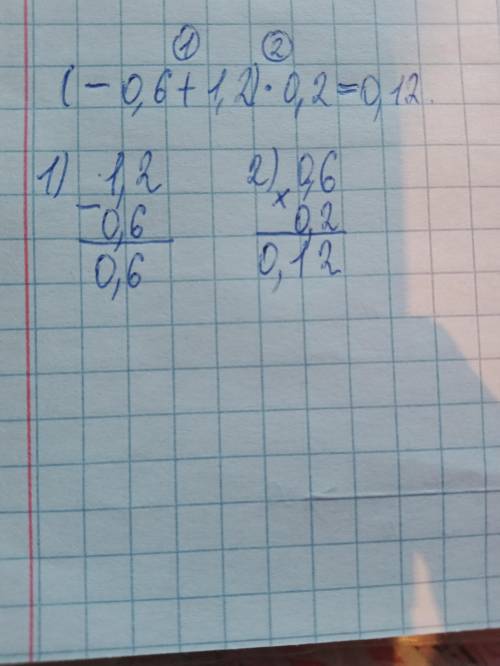 ① ②
(− 0,6 + 1,2) · 0,2 = 0,12.
1) 1,2 2) 0,6
− 0,6 × 0,2
0,6 0,12